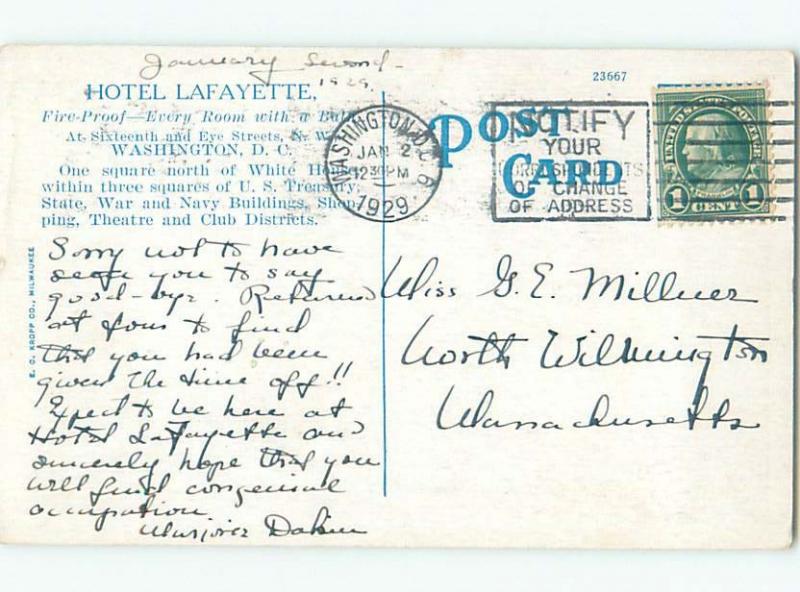 January Second -
1929.
HOTEL LAFAYETTE,
Fire-Proof—Every Room with a Bath
At Sixteenth and Eye Streets, N. W.
WASHINGTON, D. C.
One square north of White House,
within three squares of U. S. Treasury,
State, War and Navy Buildings, Shop-
ping, Theatre and Club Districts.
E. C. KROPP CO., MILWAUKEE
Sorry not to have
seen you to say
good-bye. Returned
at four to find
that you had been
given the time off!!
Expect to be here at
Hotel Lafayette and
sincerely hope that you
will find congenial
occupation
Marjorie Dakin
23667
POST
CARD
WASHINGTON, D.C.
JAN 2
12 30 PM
1929
NOTIFY
YOUR
CORRESPONDENTS
OF CHANGE
OF ADDRESS
1 CENT 1
Miss G. E. Millner
North Wilmington
Massachusetts